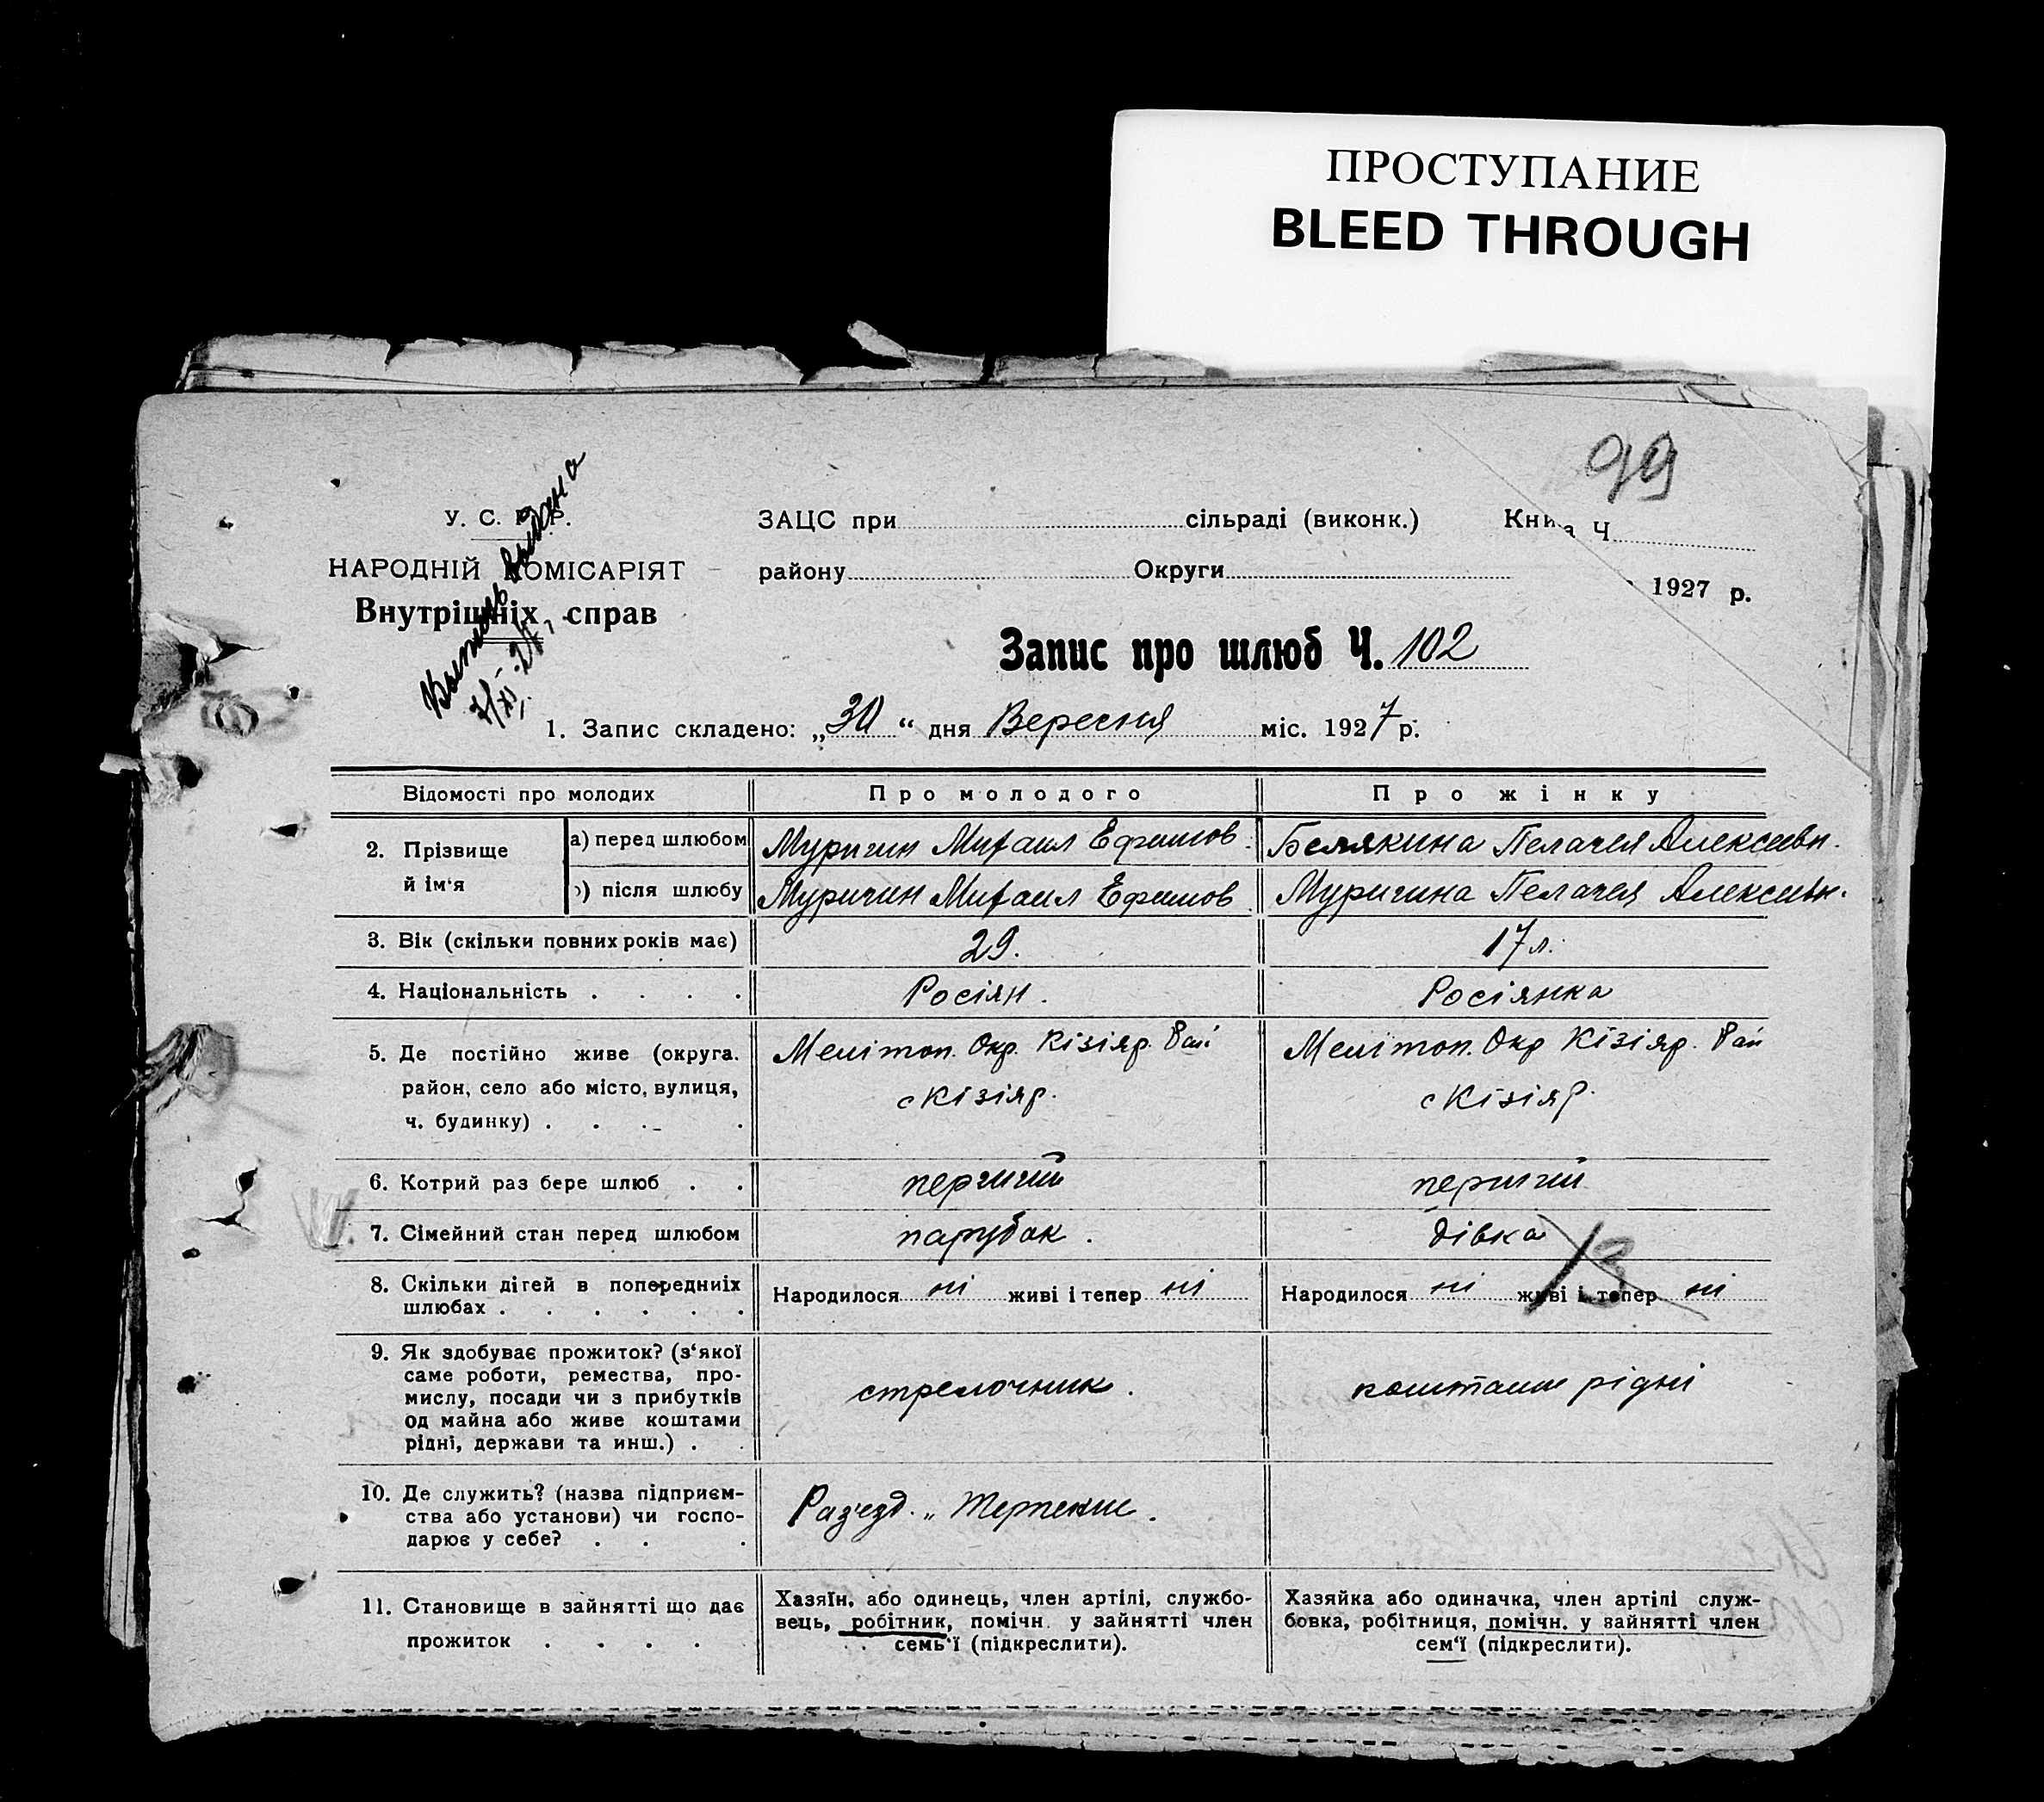 ПРОСТУПАНИЕ
BLEED THROUGH
99
У. С. Р. Р.
НАРОДНІЙ КОМІСАРІЯТ
Внутрішніх справ
выдана
ЗАЦС при сільраді (виконк.) Книга Ч
району Округи 1927 р.
Запис про шлюб Ч. 102
1. Запис складено: „30“ дня Вересня міс. 1927 р.
Відомості про молодих Про молодого Про жінку
2. Прізвище й ім‘я
а) перед шлюбом Муригин Михаил Ефимов. Белякина Пелагея Алексеевн.
) після шлюбу Муригин Михаил Ефимов Муригина Пелагея Алексеевн.
3. Вік (скільки повних років має) 29. 17 л.
4. Національність . . . . Росіян. Росіянка
5. Де постійно живе (округа. Мелітоп. Окр. Кізіяр. Рай Мелітоп. Окр Кізіяр. Рай
район, село або місто, вулиця, с Кізіяр. с Кізіяр.
ч. будинку) . . . .
6. Котрий раз бере шлюб . . перший перший
7. Сімейний стан перед шлюбом парубок. дівка
8. Скільки дітей в попередніх Народилося ні живі і тепер ні Народилося ні живі і тепер ні
шлюбах . . . . . .
13
9. Як здобуває прожиток? (з‘якої
саме роботи, ремества, про-
мислу, посади чи з прибутків стрелочник. коштами рідні
од майна або живе коштами
рідні, держави та инш.) . .
10. Де служить? (назва підприєм-
ства або установи) чи госпо- Раз'езд „
дарює у себе? . . .
11. Становище в зайнятті що дає
прожиток . . . .
Хазяїн, або одинець, член артілі, службо-
вець, робітник, помічн. у зайнятті член
семь‘ї (підкреслити).
Хазяйка або одиначка, член артілі служ-
бовка, робітниця, помічн. у зайнятті член
сем‘ї (підкреслити).